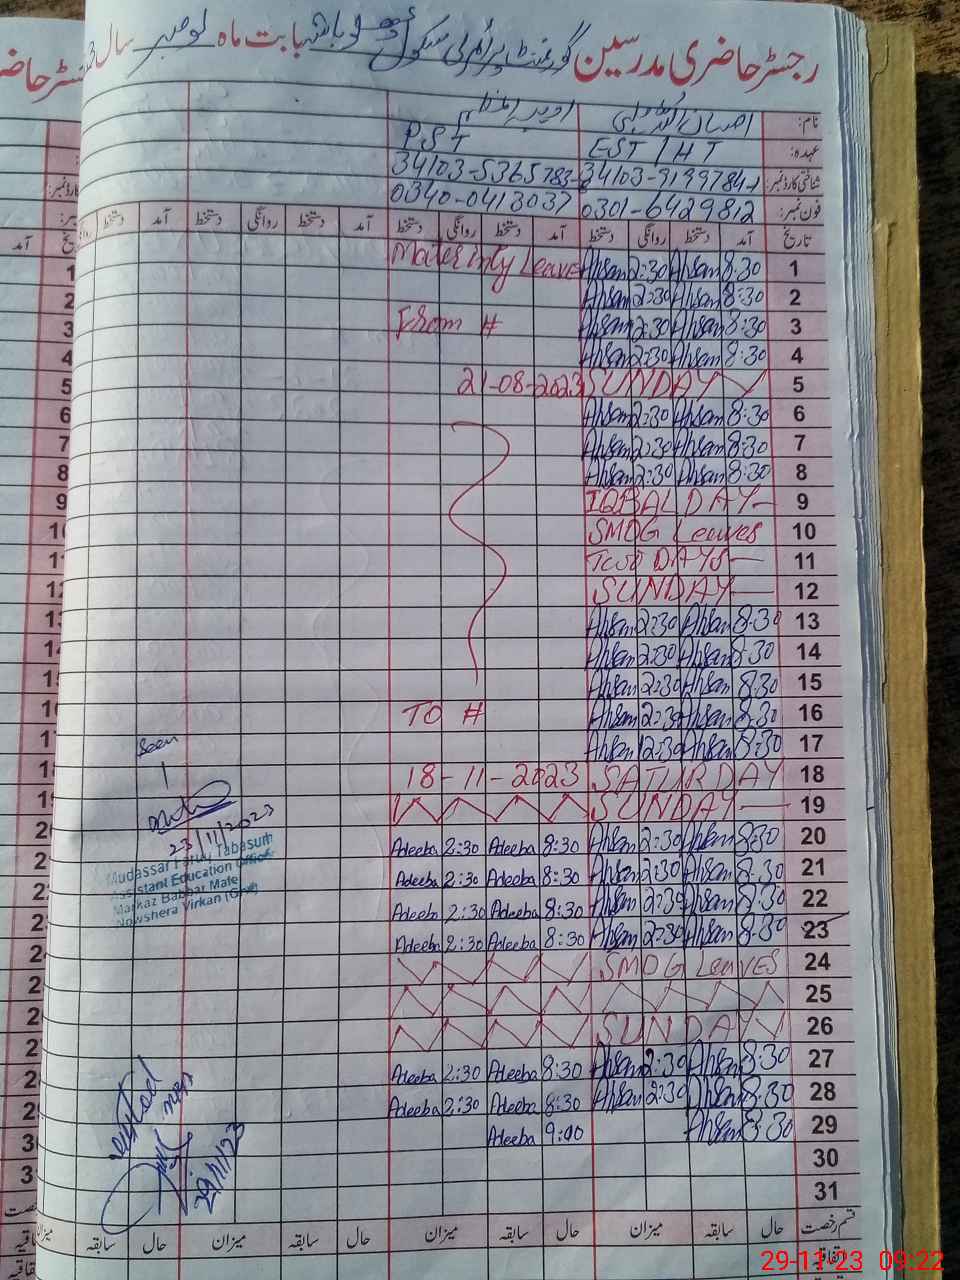 رجسٹر حاضری مدرسین گورنمنٹ پرائمری سکول بابت ماہ نومبر سال
نام:
عہدہ: EST / HT PST
شناختی کارڈ نمبر: 34103-5365783-
فون نمبر: 0301-6429812 0340-0413037
تاریخ آمد دستخط روانگی دستخط آمد دستخط روانگی دستخط آمد دستخط روانگی دستخط آمد دستخط
1 8:30 Ahsan 2:30 Ahsan Maternity Leave
2 8:30 Ahsan 2:30 Ahsan
3 8:30 Ahsan 2:30 Ahsan From #
4 8:30 Ahsan 2:30 Ahsan
5 SUNDAY 21-08-2023
6 8:30 Ahsan 2:30 Ahsan
7 8:30 Ahsan 2:30 Ahsan
8 8:30 Ahsan 2:30 Ahsan
9 IQBAL DAY
10 SMOG Leaves
11 TWO DAYS
12 SUNDAY
13 8:30 Ahsan 2:30 Ahsan
14 8:30 Ahsan 2:30 Ahsan
15 8:30 Ahsan 2:30 Ahsan
16 8:30 Ahsan 2:30 Ahsan TO #
17 8:30 Ahsan 2:30 Ahsan
18 SATURDAY 18-11-2023
19 SUNDAY
20 8:30 Ahsan 2:30 Ahsan 8:30 Adeeba 2:30 Adeeba
21 8:30 Ahsan 2:30 Ahsan 8:30 Adeeba 2:30 Adeeba
22 8:30 Ahsan 2:30 Ahsan 8:30 Adeeba 2:30 Adeeba
23 8:30 Ahsan 2:30 Ahsan 8:30 Adeeba 2:30 Adeeba
24 SMOG Leaves
25
26 SUNDAY
27 8:30 Ahsan 2:30 Ahsan 8:30 Adeeba 2:30 Adeeba
28 8:30 Ahsan 2:30 Ahsan 8:30 Adeeba 2:30 Adeeba
29 8:30 Ahsan 9:00 Adeeba
30
31
Seen
23/11/2023
Mudassar Tabasum
Assistant Education Officer
Markaz Babbar Mate
Nowshera Virkan (Grw)
29/11/23
قسم رخصت حال سابقہ میزان حال سابقہ میزان حال سابقہ میزان حال سابقہ
اتفاقیہ
29-11-23 09:22